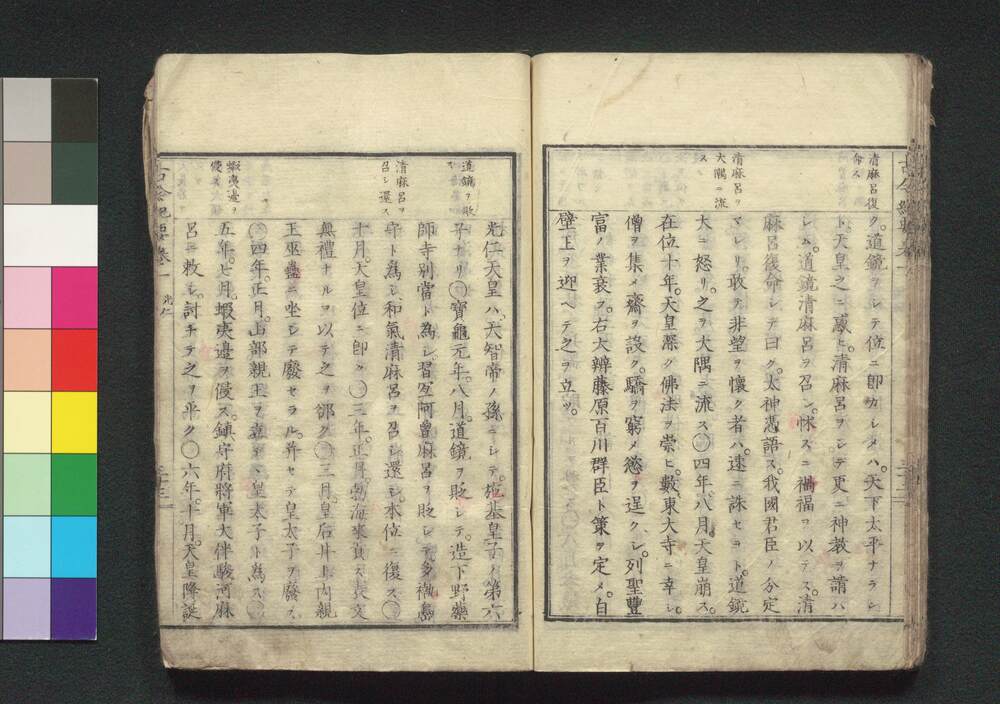 清麻呂復
命ス
ク。道鏡ヲシテ位ニ卽カシメハ。天下太平ナラン
ト天皇之ニ惑ヒ。清麻呂ヲシテ更ニ神教ヲ請ハ
シム。道鏡清麻呂ヲ召シ。怵スニ禍福ヲ以テス。清
麻呂復命シテ曰ク。太神憑語ス。我國君臣ノ分定
マレリ。敢テ非望ヲ懷ク者ハ。速ニ誅セヨト。道鏡
清麻呂ヲ
大隅ニ流
ス
大ニ怒リ。之ヲ大隅ニ流ス〇四年。八月天皇崩ス。
在位十年。天皇深ク佛法ヲ崇ヒ。數東大寺ニ幸シ。
僧ヲ集メ齋ヲ設ク。驕ヲ窮メ慾ヲ逞クシ。列聖豐
富ノ業衰フ。右大辨藤原百川群臣ト策ヲ定メ。白
壁王ヲ迎ヘテ之ヲ立ツ。
光仁天皇ハ。天智帝ノ孫ニシテ。施基皇子ノ第六
道鏡ヲ貶
ス
子ナリ〇寶龜元年。八月。道鏡ヲ貶シテ。造下野藥
師寺別當ト為シ。習宜阿曾麻呂ヲ貶シテ多褹島
清麻呂ヲ
召シ還ス
守ト為シ。和氣清麻呂ヲ召シ還シ。本位ニ復ス〇
十月。天皇位ニ卽ク〇三年。正月。渤海來貢ス表文
無禮ナルヲ以テ之ヲ郤ク〇三月。皇后井上內親
王巫蠱ニ坐シテ廢セラル。并セテ皇太子ヲ廢ス
〇四年。正月。山部親王ヲ立テヽ皇太子ト為ス〇
蝦夷邊ヲ
侵ス
五年。七月。蝦夷邊ヲ侵ス。鎮守府將軍大伴駿河麻
呂ニ敕シ。討チテ之ヲ平ク〇六年。十月。天皇降誕
古今紀要卷一
光仁